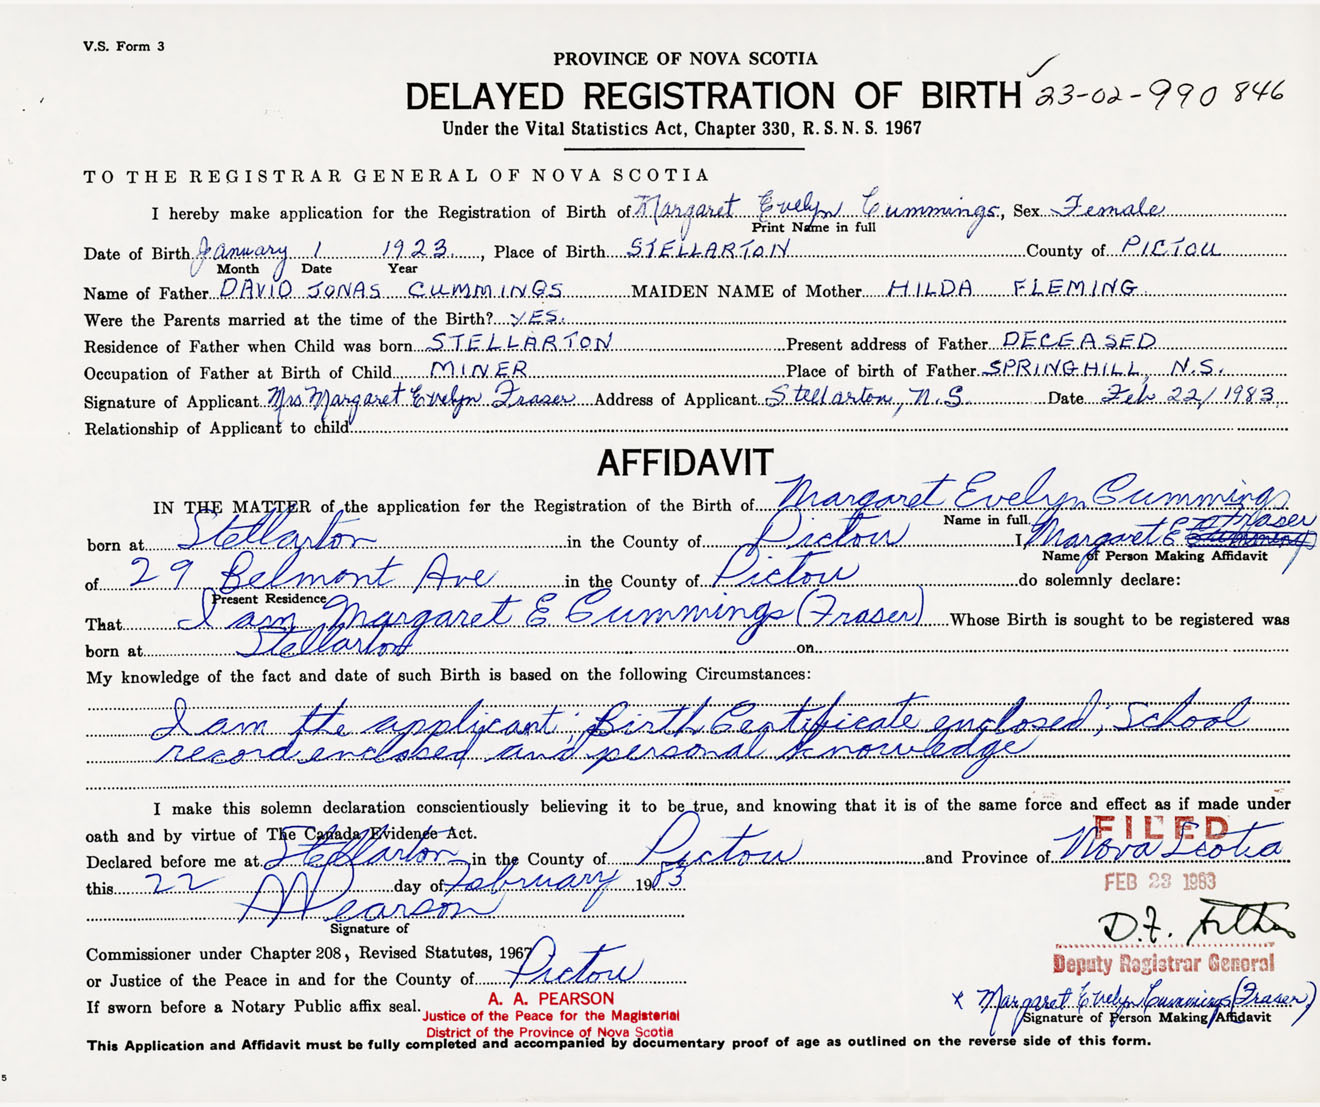 V.S. Form 3
PROVINCE OF NOVA SCOTIA
DELAYED REGISTRATION OF BIRTH 23-02-990 846
Under the Vital Statistics Act, Chapter 330, R. S. N. S. 1967
TO THE REGISTRAR GENERAL OF NOVA SCOTIA
I hereby make application for the Registration of Birth of Margaret Evelyn Cummings, Sex Female
Print Name in full
Date of Birth January 1 1923, Place of Birth STELLARTON County of PICTOU
Month Date Year
Name of Father DAVID JONAS CUMMINGS MAIDEN NAME of Mother HILDA FLEMING
Were the Parents married at the time of the Birth? YES.
Residence of Father when Child was born STELLARTON Present address of Father DECEASED
Occupation of Father at Birth of Child MINER Place of birth of Father SPRINGHILL, N.S.
Signature of Applicant Mrs Margaret Evelyn Fraser Address of Applicant Stellarton, N.S. Date Feb 22/1983
Relationship of Applicant to child
AFFIDAVIT
IN THE MATTER of the application for the Registration of the Birth of Margaret Evelyn Cummings
Name in full
born at Stellarton in the County of Pictou I Margaret E Fraser
Name of Person Making Affidavit
of 29 Belmont Ave in the County of Pictou do solemnly declare:
Present Residence
That I am Margaret E Cummings (Fraser) Whose Birth is sought to be registered was
born at Stellarton on
My knowledge of the fact and date of such Birth is based on the following Circumstances:
I am the applicant; Birth Certificate enclosed; School
record enclosed and personal knowledge
I make this solemn declaration conscientiously believing it to be true, and knowing that it is of the same force and effect as if made under
oath and by virtue of The Canada Evidence Act.
FILED
Declared before me at Stellarton in the County of Pictou and Province of Nova Scotia
this 22 day of February 1983
FEB 23 1983
A A Pearson
Signature of
D.F.
Commissioner under Chapter 208, Revised Statutes, 1967
Deputy Registrar General
or Justice of the Peace in and for the County of Pictou
If sworn before a Notary Public affix seal.
A. A. PEARSON
Justice of the Peace for the Magisterial
District of the Province of Nova Scotia
x Margaret Evelyn Cummings (Fraser)
Signature of Person Making Affidavit
This Application and Affidavit must be fully completed and accompanied by documentary proof of age as outlined on the reverse side of this form.
5